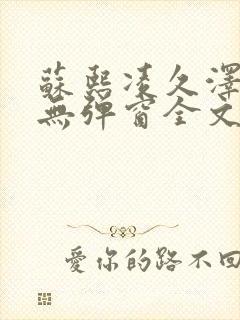 蘇熙凌久澤
無彈窗全文
愛你的路不回